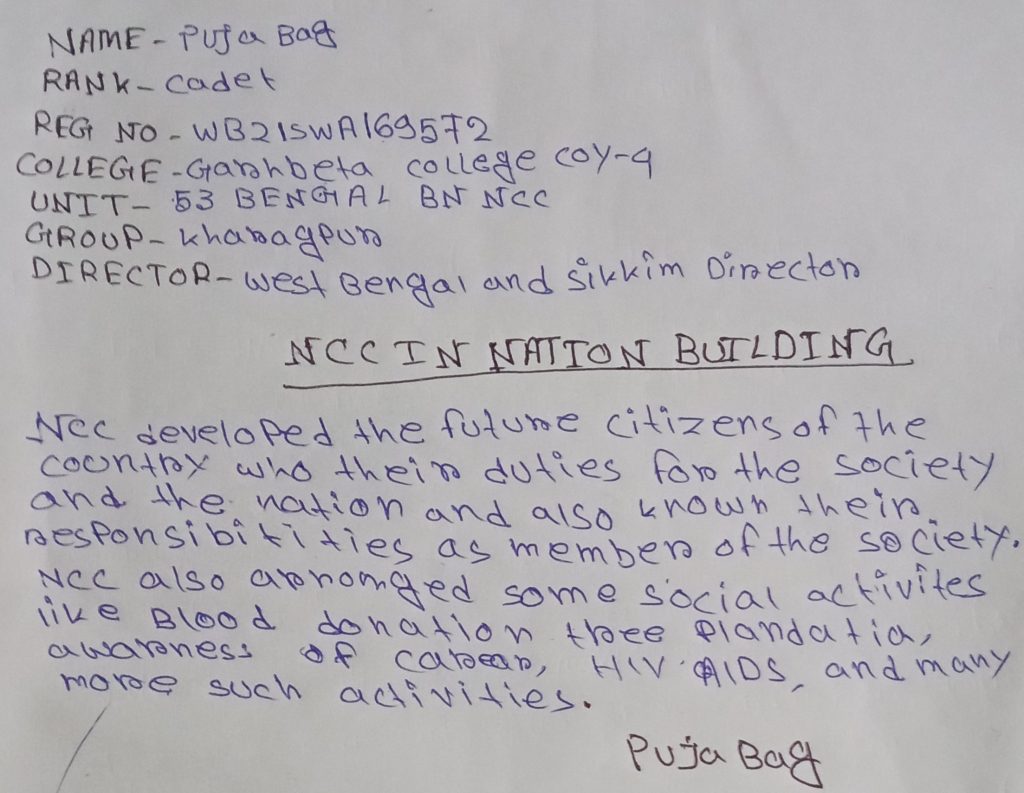 NAME - Puja Bag
RANK - Cadet
REG NO - WB21SWA169572
COLLEGE - Garhbeta college COY-4
UNIT - 53 BENGAL BN NCC
GROUP - Kharagpur
DIRECTOR - West Bengal and Sikkim Director
NCC IN NATION BUILDING
NCC developed the future citizens of the
country who their duties for the society
and the nation and also known their
responsibitities as member of the society.
NCC also arromged some social activites
like Blood donation tree Plandatia,
awarness of carear, HIV AIDS, and many
more such activities.
Puja Bag